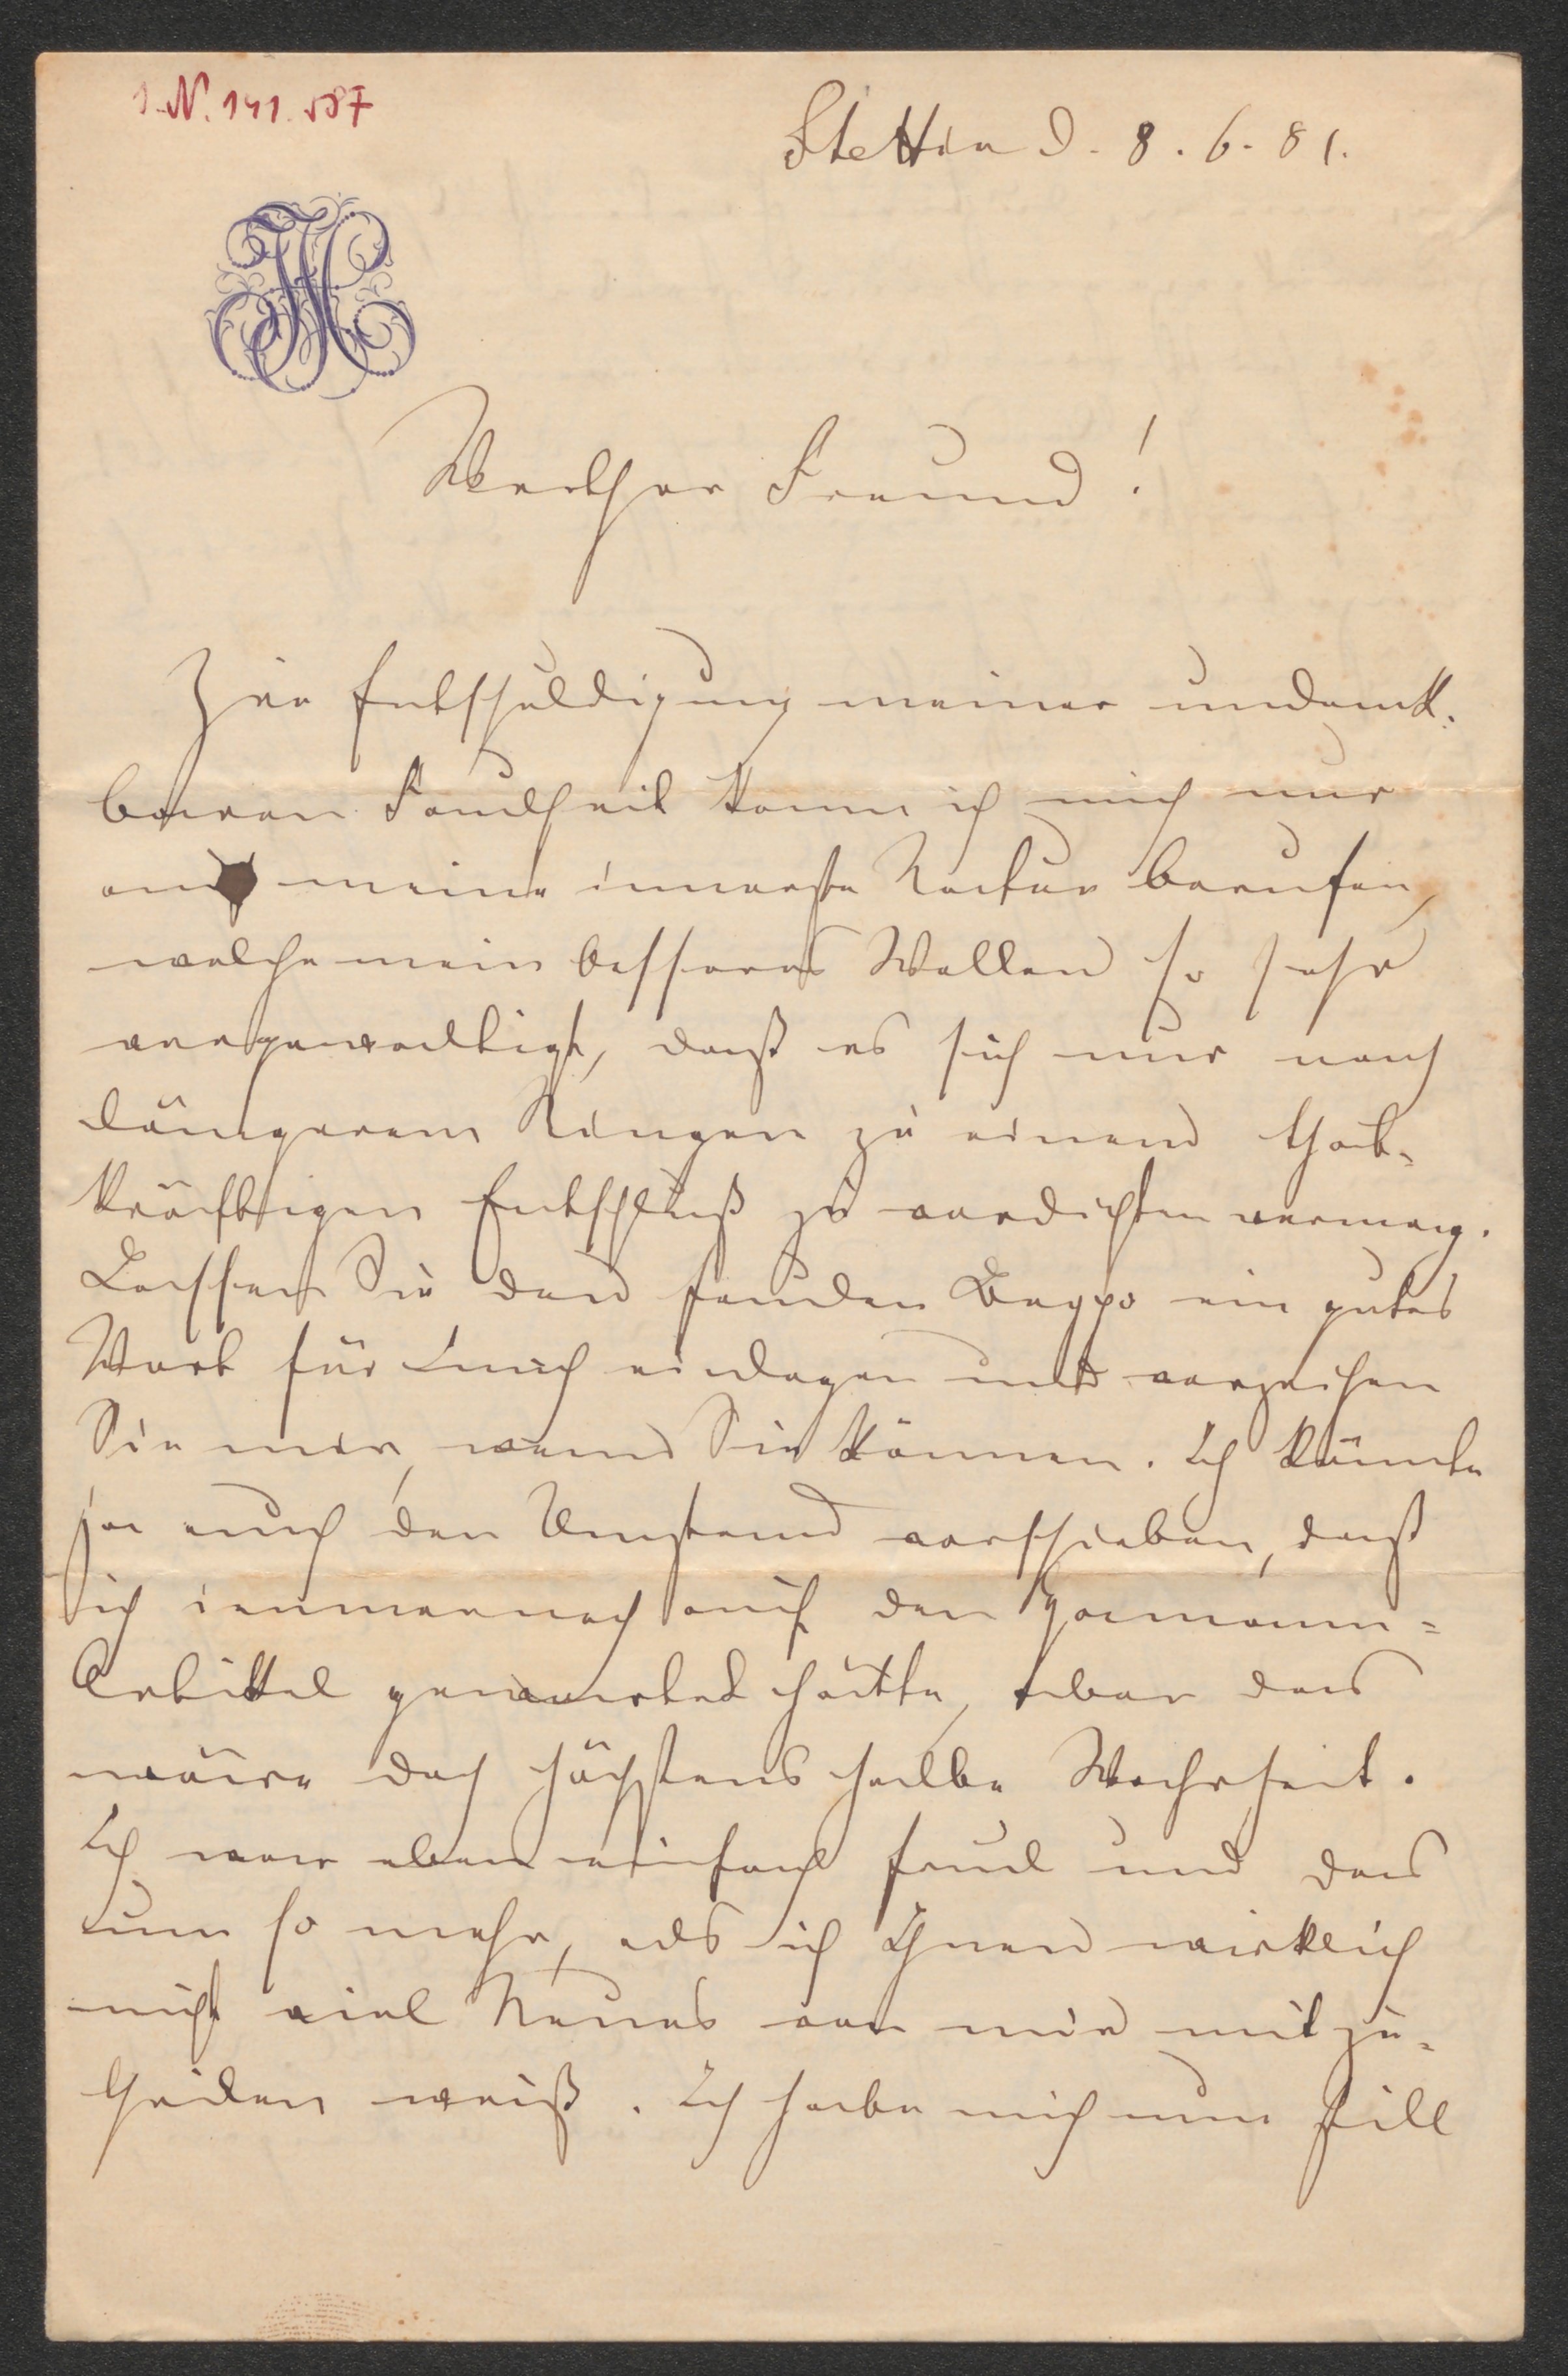 I.N. 141.587
Stettin d. 8. 6. 81.
Werther Freund!
Zur Entschuldigung meiner undank-
baren Faulheit kann ich mich nur
auf meine innerste Natur berufen,
welche mein besseres Wollen so sehr
vergewaltigt, daß es sich nur nach
längerem Ringen zu einem that-
kräftigen Entschluß zu verdichten vermag.
Lassen Sie den faulen Beppo ein gutes
Wort für mich einlegen und verzeihen
Sie mir, wenn Sie können. Ich könnte
ja auch den Umstand vorschieben, daß
ich immer noch auf den Hermann-
Artikel gewartet hätte, aber das
wäre doch höchstens halbe Wahrheit.
Ich war eben einfach faul und das
um so mehr, als ich Ihnen wirklich
nicht viel Neues von mir mitzu-
theilen weiß. Ich habe mich nun still